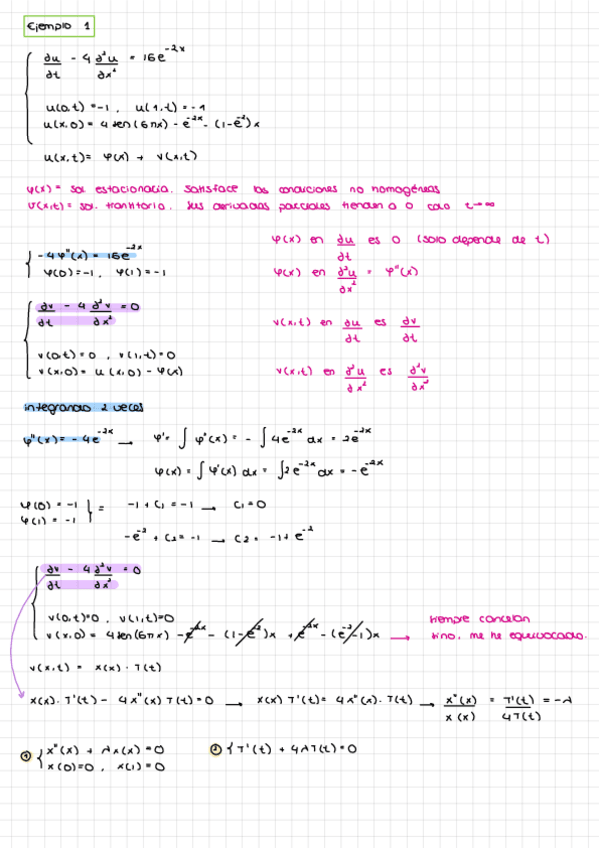 Ejemplo 1
∂u/∂t - 4 ∂²u/∂x² = 16e^-2x
u(0,t) = -1 , u(1,t) = -1
u(x,0) = 4 sen(6πx) - e^-2x - (1-e^-2)x
u(x,t) = φ(x) + v(x,t)
φ(x) = sol estacionaria. Satisface las condiciones no homogéneas
v(x,t) = sol. transitoria. Sus derivadas parciales tienden a 0 cdo t→∞
-4φ''(x) = 16e^-2x
φ(0) = -1, φ(1) = -1
φ(x) en ∂u/∂t es 0 (solo depende de t)
φ(x) en ∂²u/∂x² = φ''(x)
∂v/∂t - 4 ∂²v/∂x² = 0
v(0,t) = 0 , v(1,t) = 0
v(x,0) = u(x,0) - φ(x)
v(x,t) en ∂u/∂t es ∂v/∂t
v(x,t) en ∂²u/∂x² es ∂²v/∂x²
integrando 2 veces
φ''(x) = -4e^-2x → φ' = ∫ φ''(x) = - ∫ 4e^-2x dx = 2e^-2x
φ(x) = ∫ φ'(x) dx = ∫ 2e^-2x dx = -e^-2x
φ(0) = -1
φ(1) = -1 } = -1 + C1 = -1 → C1 = 0
-e^-2 + C2 = -1 → C2 = -1 + e^-2
∂v/∂t - 4 ∂²v/∂x² = 0
v(0,t)=0 , v(1,t)=0
v(x,0) = 4 sen(6πx) - e^-2x - (1-e^-2)x + e^-2x - (e^-2-1)x →
siempre cancelan
sino, me he equivocado.
v(x,t) = X(x) · T(t)
X(x) · T'(t) - 4X''(x) T(t) = 0 → X(x) T'(t) = 4X''(x) · T(t) → X''(x)/X(x) = T'(t)/4T(t) = -λ
① { X''(x) + λX(x) = 0
X(0)=0 , X(1) = 0
② { T'(t) + 4λT(t) = 0